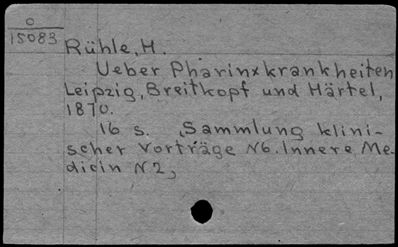 O
15083
Rühle, H.
Ueber Pharinxkrankheiten
Leipzig, Breitkopf und Härtel,
1870.
16 s. „Sammlung klini-
scher Vorträge N6. Innere Me-
dicin N2„